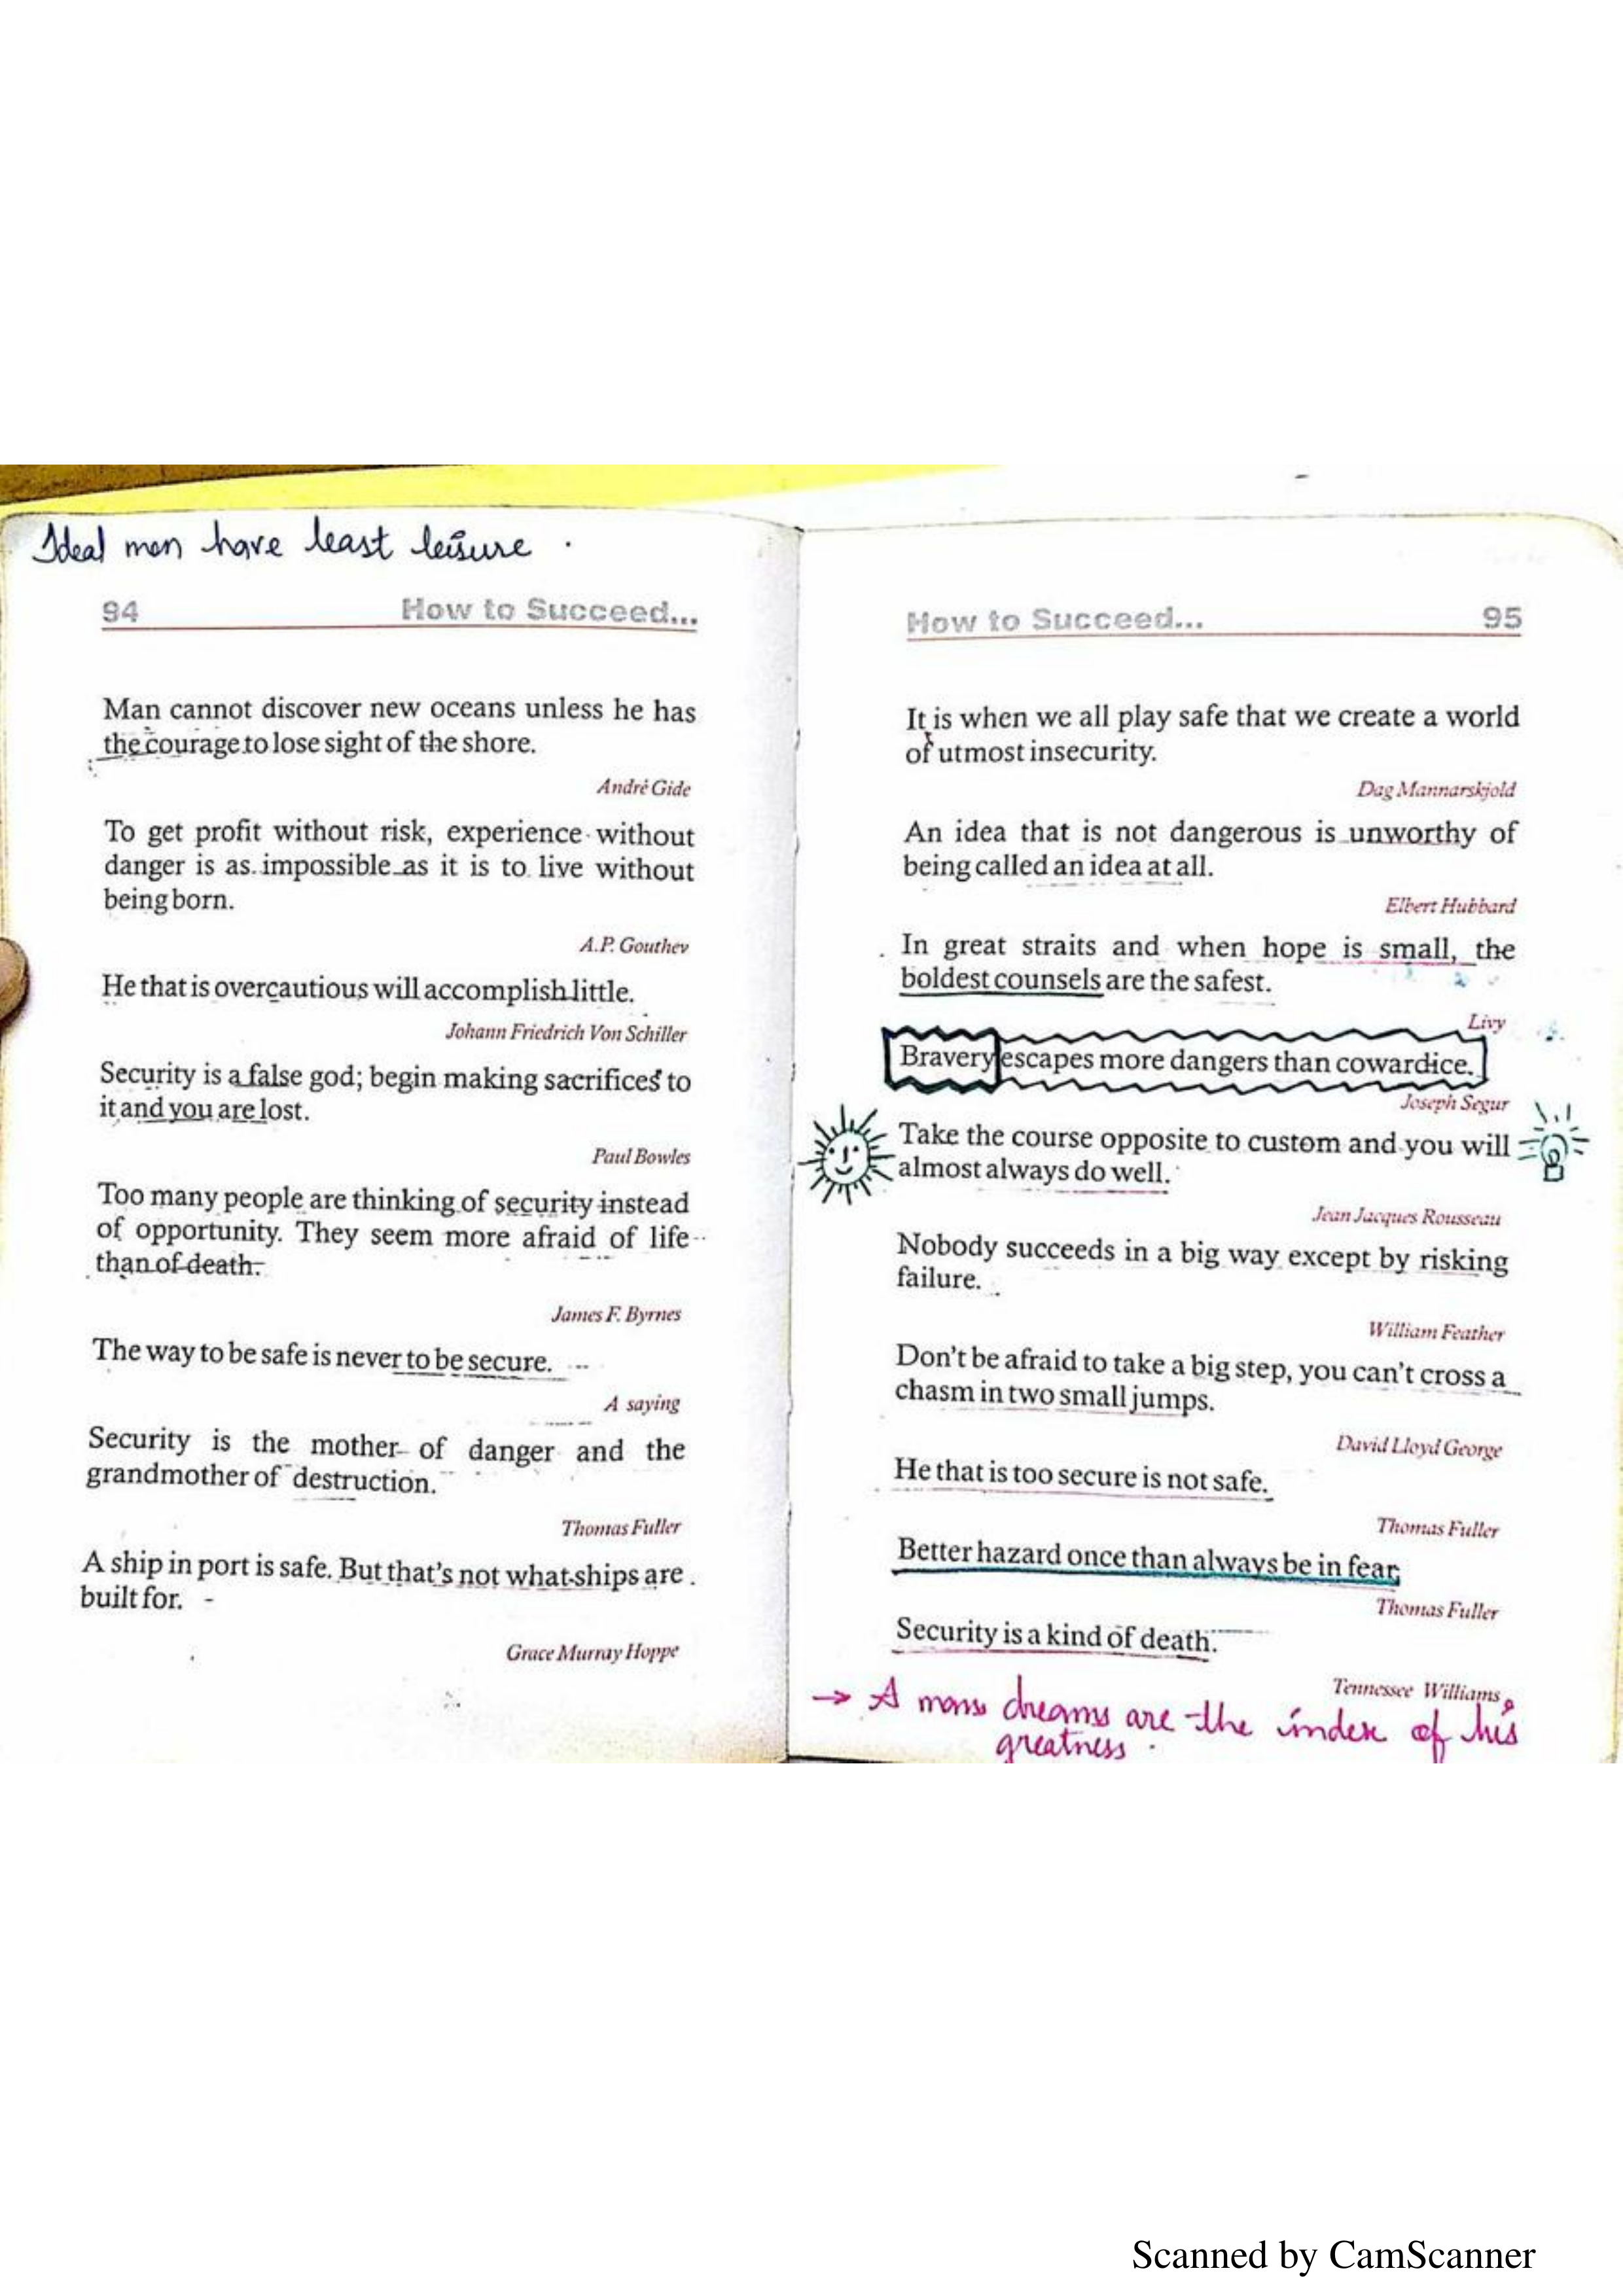 Ideal men have least leisure .
94 How to Succeed...
Man cannot discover new oceans unless he has
the courage to lose sight of the shore.
André Gide
To get profit without risk, experience without
danger is as impossible as it is to live without
being born.
A.P. Gouthev
He that is overcautious will accomplish little.
Johann Friedrich Von Schiller
Security is a false god; begin making sacrifices to
it and you are lost.
Paul Bowles
Too many people are thinking of security instead
of opportunity. They seem more afraid of life
than of death.
James F. Byrnes
The way to be safe is never to be secure.
A saying
Security is the mother of danger and the
grandmother of destruction.
Thomas Fuller
A ship in port is safe. But that's not what ships are
built for.
Grace Murray Hoppe
How to Succeed... 95
It is when we all play safe that we create a world
of utmost insecurity.
Dag Mannarskjold
An idea that is not dangerous is unworthy of
being called an idea at all.
Elbert Hubbard
In great straits and when hope is small, the
boldest counsels are the safest.
Livy
Bravery escapes more dangers than cowardice.
Joseph Segur
Take the course opposite to custom and you will
almost always do well.
Jean Jacques Rousseau
Nobody succeeds in a big way except by risking
failure.
William Feather
Don't be afraid to take a big step, you can't cross a
chasm in two small jumps.
David Lloyd George
He that is too secure is not safe.
Thomas Fuller
Better hazard once than always be in fear.
Thomas Fuller
Security is a kind of death.
Tennessee Williams
→ A mans dreams are the index of his
greatness .
Scanned by CamScanner